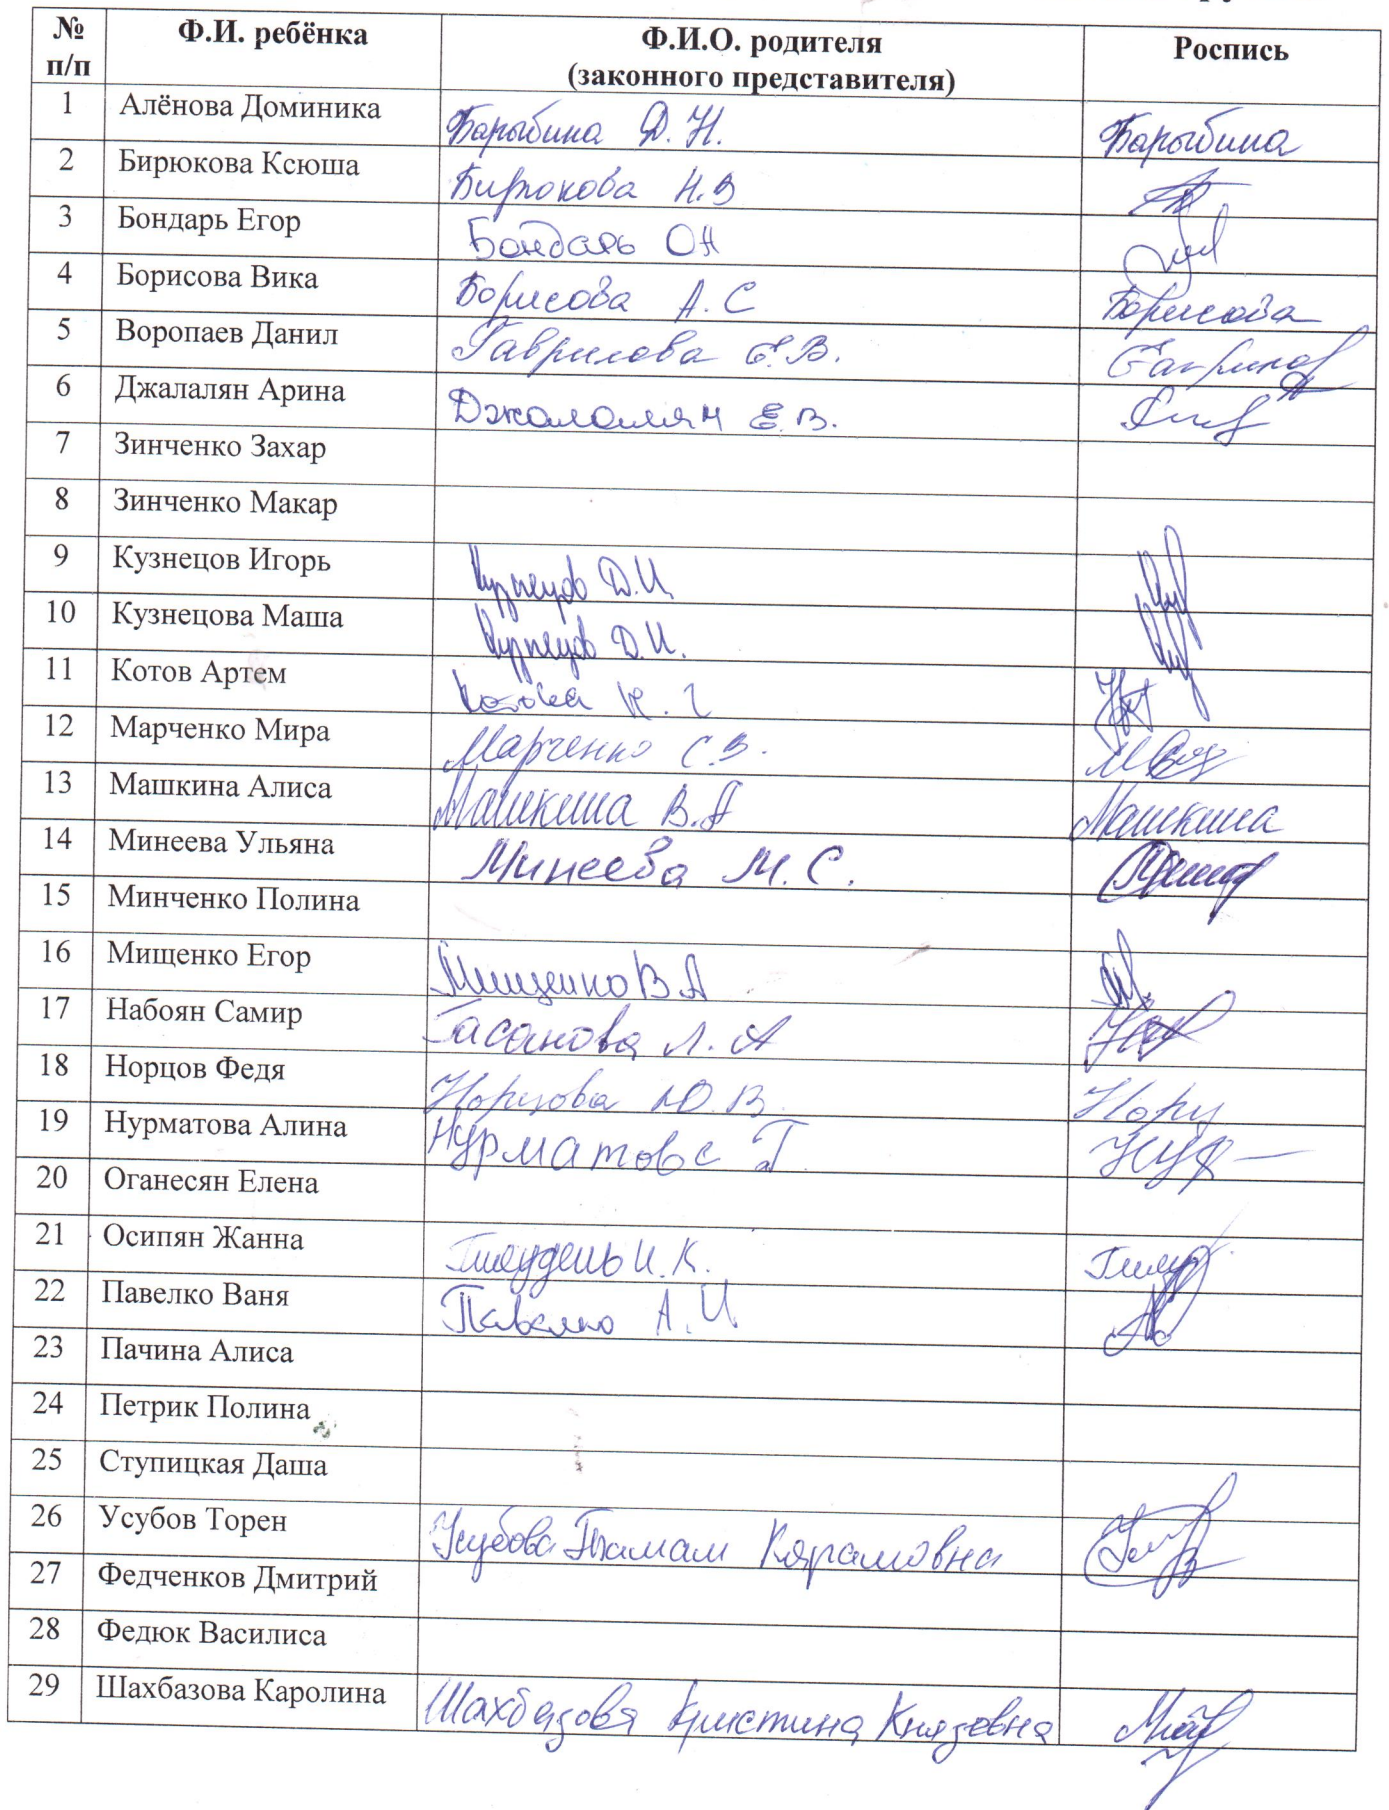 № п/п Ф.И. ребёнка Ф.И.О. родителя (законного представителя) Роспись
1 Алёнова Доминика Барыбина Д.Н. Барыбина
2 Бирюкова Ксюша Бирюкова Н.В
3 Бондарь Егор Бондарь ОН
4 Борисова Вика Борисова А.С Борисова
5 Воропаев Данил Гаврилова Е.В.
6 Джалалян Арина Джалалян Е.В.
7 Зинченко Захар
8 Зинченко Макар
9 Кузнецов Игорь Кузнецов Д.И.
10 Кузнецова Маша Кузнецов Д.И.
11 Котов Артем Котова К.Г
12 Марченко Мира Марченко С.В.
13 Машкина Алиса Машкина В.А Машкина
14 Минеева Ульяна Минеева М.С.
15 Минченко Полина
16 Мищенко Егор Мищенко В А
17 Набоян Самир Гасанова Л.А
18 Норцов Федя Норцова Ю.В. Норц
19 Нурматова Алина Нурматова Г Нур
20 Оганесян Елена
21 Осипян Жанна И.К.
22 Павелко Ваня Павелко А.И
23 Пачина Алиса
24 Петрик Полина
25 Ступицкая Даша
26 Усубов Торен Усубова Тамам Карамовна
27 Федченков Дмитрий
28 Федюк Василиса
29 Шахбазова Каролина Шахбазова Кристина Князовна